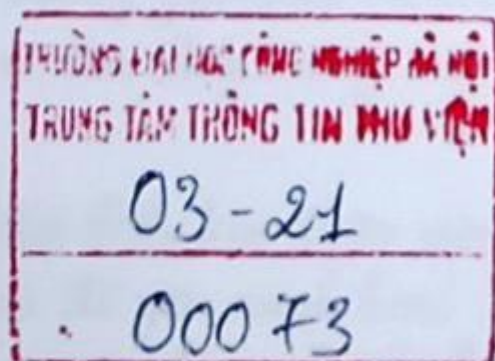 TRƯỜNG ĐẠI HỌC CÔNG NGHIỆP HÀ NỘI
TRUNG TÂM THÔNG TIN THƯ VIỆN
03-21
00073